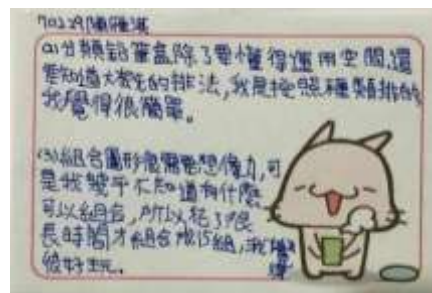 70229陳雅淇
(2)分類鉛筆盒除了要懂得運用空間,還
要知道大概的排法,我是按照種類排的
我覺得很簡單。
(3)組合圖形很需要想像力,可
是我幾乎不知道有什麼
可以組合,所以花了很
長時間才組合成15組,我覺得
很好玩。